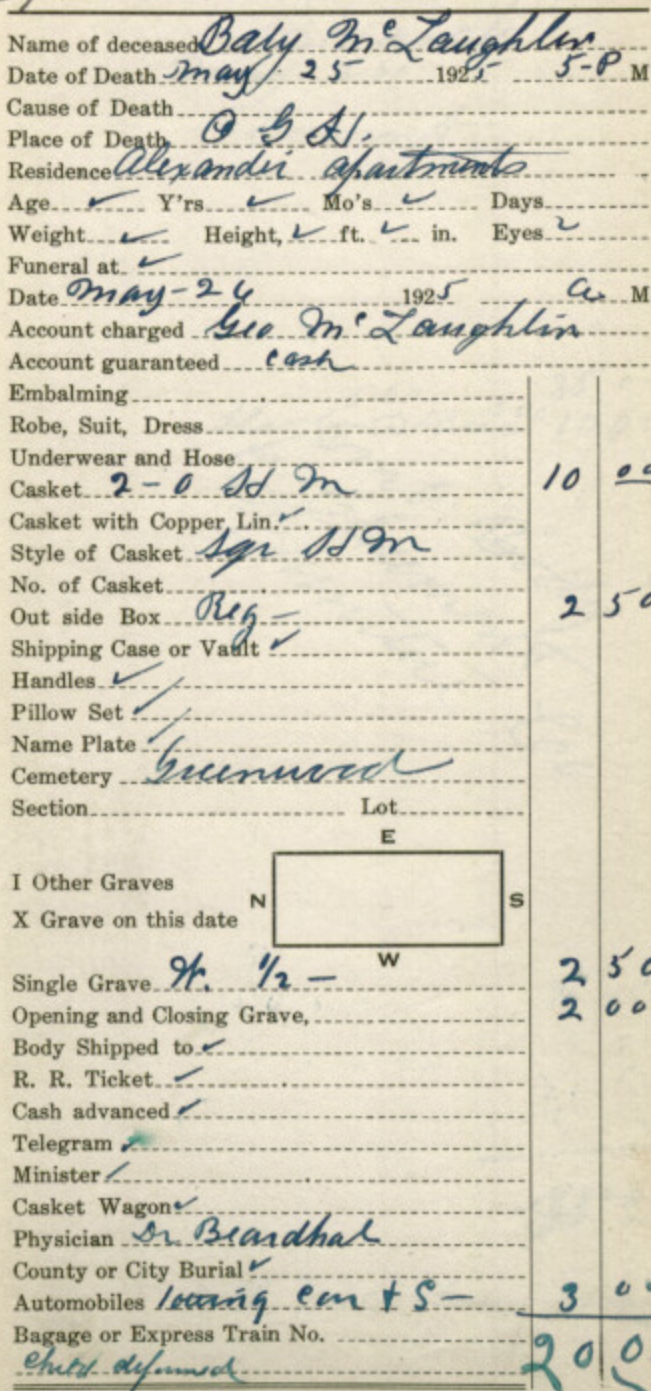 Name of deceased Baby McLaughlin
Date of Death May 25 1925 5-P M
Cause of Death
Place of Death O G H.
Residence Alexander apartments
Age ✓ Y'rs ✓ Mo's ✓ Days
Weight ✓ Height, ✓ ft. ✓ in. Eyes
Funeral at ✓
Date May-26 1925 a. M
Account charged Geo McLaughlin
Account guaranteed cash
Embalming
Robe, Suit, Dress
Underwear and Hose
Casket 2-0 10 00
Casket with Copper Lin. ✓
Style of Casket Sqr
No. of Casket
Out side Box Reg - 2 50
Shipping Case or Vault ✓
Handles ✓
Pillow Set ✓
Name Plate ✓
Cemetery Greenwood
Section Lot
E
I Other Graves
N S
X Grave on this date
W
Single Grave W. 1/2 - 2 50
Opening and Closing Grave, 2 00
Body Shipped to ✓
R. R. Ticket ✓
Cash advanced ✓
Telegram ✓
Minister ✓
Casket Wagon ✓
Physician Dr Beardhal
County or City Burial ✓
Automobiles touring car + S - 3 00
Bagage or Express Train No. 20 0
Child deformed